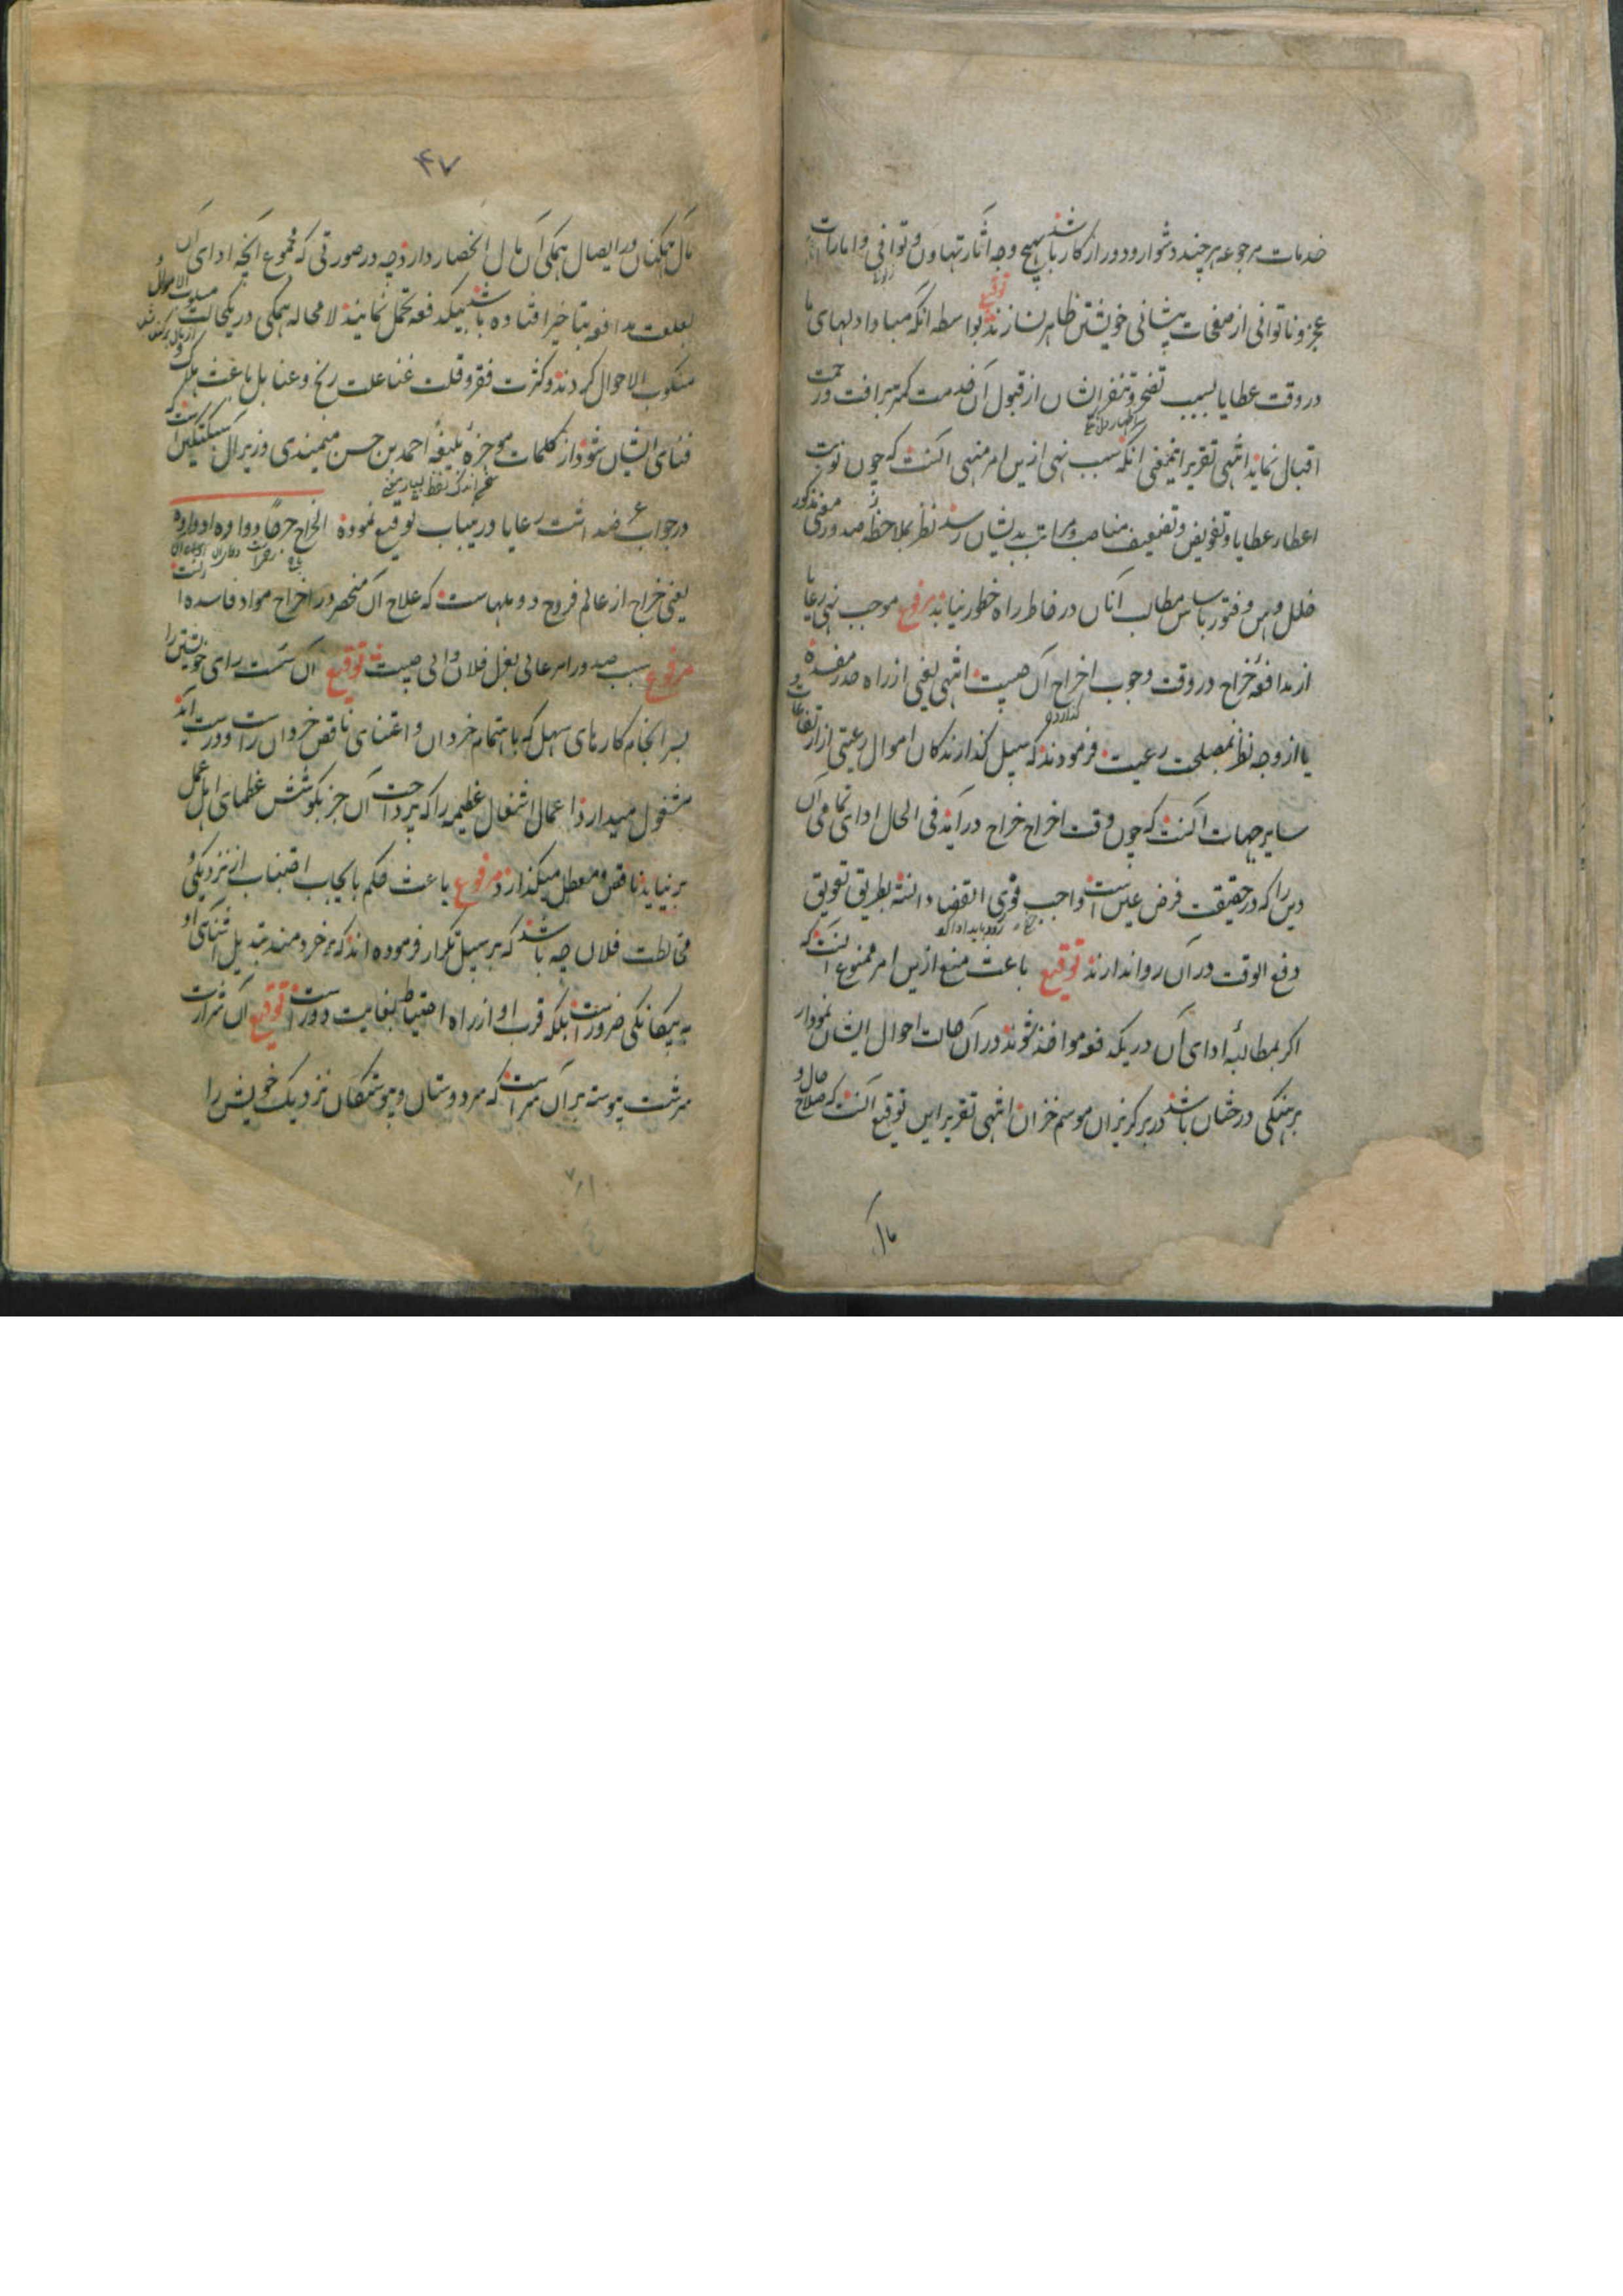 خدمات مرجوعه هر چند دشوار و دور از کار باشد بهیچ وجه آثار تهاون و توافی و امارات
عجز و ناتوانی از صفحات پیشانی خویشتن ظاهر نسازند توقیع بواسطه آنکه مبادا دلهای ما
در وقت عطایا بسبب تضجر و تنفر ایشان از قبول آن خدمت کمتر بر رافت و رحمت
اقبال نماید انتهی تقریر اینمعنی آنکه سبب نهی ازین امر منهی آنست که چون نوبت
اعطاء عطایا و تفویض و تضعیف مناصب و مراتب بدیشان رسد نظر بملاحظه صدور معنی مذکور
خلل و وهن و فتور باساس مطالب آنان در خاطر راه خطور نیابد مرفوع موجب نهی رعایا
از مدافعه خراج در وقت وجوب اخراج آن چیست انتهی یعنی از راه صدر مفسده
یا از وجه نظر بمصلحت رعیت فرمودند که سبیل گذارندگان اموال رعیتی از ارتفاعات و
سایر جهات آنست که چون وقت اخراج خراج درآید فی الحال ادای تمامی آن
دین را که در حقیقت فرض عین است و واجب فوری القضا دانسته بطریق تعویق
دفع الوقت در آن روا ندارند توقیع باعث منع ازین امر ممنوع آنست که
اگر بمطالبه ادای آن در یکدفعه مواخذ شوند در آن حالت احوال ایشان نمودار
برهنگی درختان باشد در برگریزان موسم خزان انتهی تقریر این توقیع آنست که صلاح حال و
۴۷
مال همگنان در ایصال همگی آن مال انحصار دارد چه در صورتی که مجموع آنچه ادای آن
بعلت مدافعه بتاخیر افتاده باشد بیکدفعه تحمل نمایند لا محاله همگی در یکحالت مسلوب الاموال و
منکوب الاحوال گردند و کثرت فقر و قلت غنا علت رنج و عنا بل باعث هلاک و
فنای ایشان شود از کلمات موجزه بلیغه احمد بن حسن میمندی وزیر آل سبکتکین است که
در جواب عرضه داشت رعایا درینباب توقیع نموده الخراج خراج دواوه اداوه
یعنی خراج از عالم قروح و دملهاست که علاج آن منحصر در اخراج مواد فاسده است
مرفوع سبب صدور امر عالی بعزل فلان والی چیست توقیع آن سست رای خویشتن را
بسرانجام کارهای سهل که باهتمام خردان و اعتنای ناقص خردان راست و درست آید
مشغول میدارد و اعمال اشغال عظیمه را که پرداخت آن جز بکوشش عظمای اهل عمل
برنیاید ناقص و معطل میگذارد مرفوع باعث حکم بایجاب اجتناب از نزدیکی و
مخالطت فلان چه باشد که بر سبیل تکرار فرموده اند که بر خردمند تبدیل آشنائی او
به بیگانگی ضرورست بلکه قرب او از راه احتیاط بغایت دورست توقیع آن شرارت
سرشت پیوسته بر آن سراست که سر دوستان و پیوستگان نزدیک خویش را